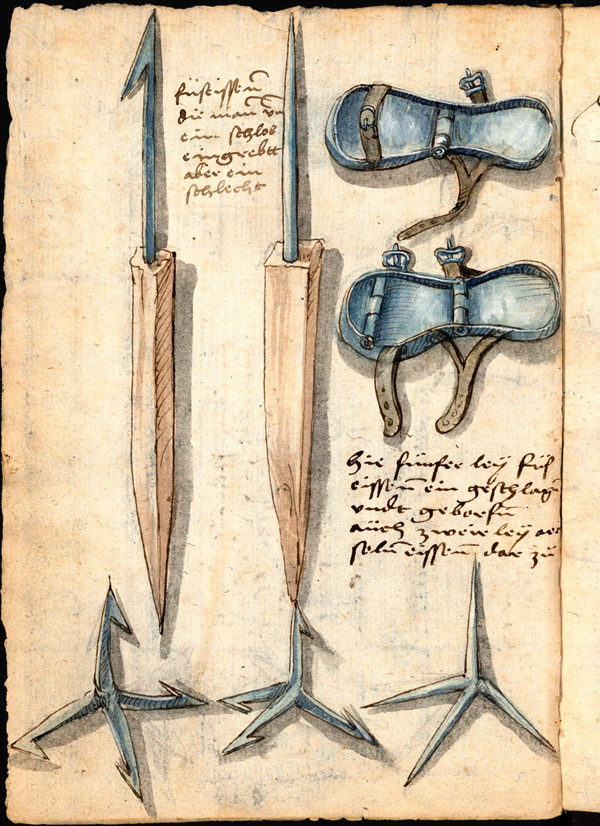 füseissen̄
die man vn̄
ein schlos
eingrebtt
aber ein
schlecht
hie fünfer leÿ füs
eissen̄ ein geschlagn̄
vndt geborfn̄
aüch zweier leÿ
seln̄ eissen̄ dar zü